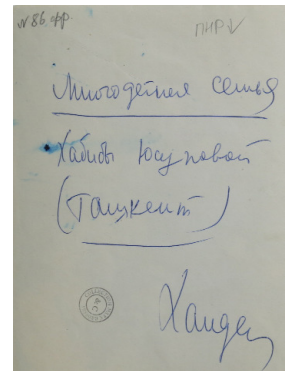 N 86 фр.
ПНР
Многодетная семья
Хабибы Юсуповой
(Ташкент)